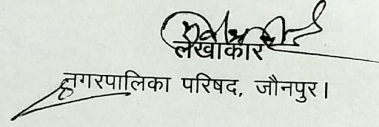 लेखाकार
नगरपालिका परिषद, जौनपुर।